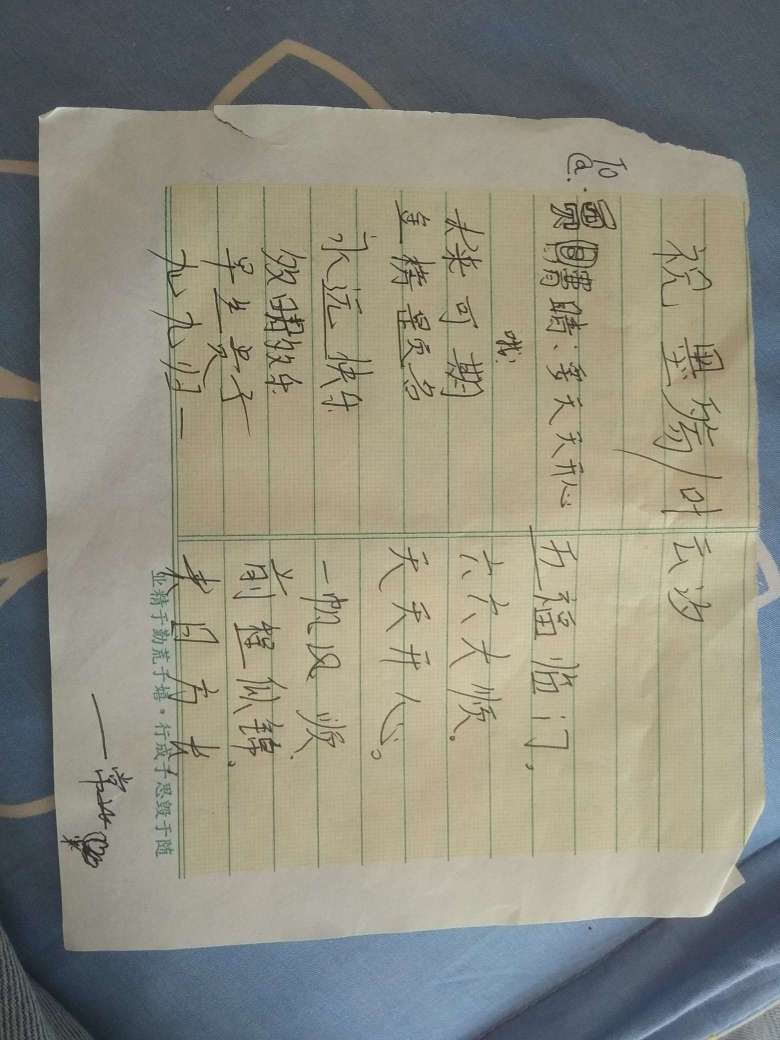 祝 墨 / 叶云汐
To
@:
天天开心
哦
五福临门,
未来可期
六六大顺.
金榜题名
天天开心。
永远快乐
一帆风顺、
前程似锦.
早生贵子
来日方长
九九归一
业精于勤荒于嬉。行成于思毁于随